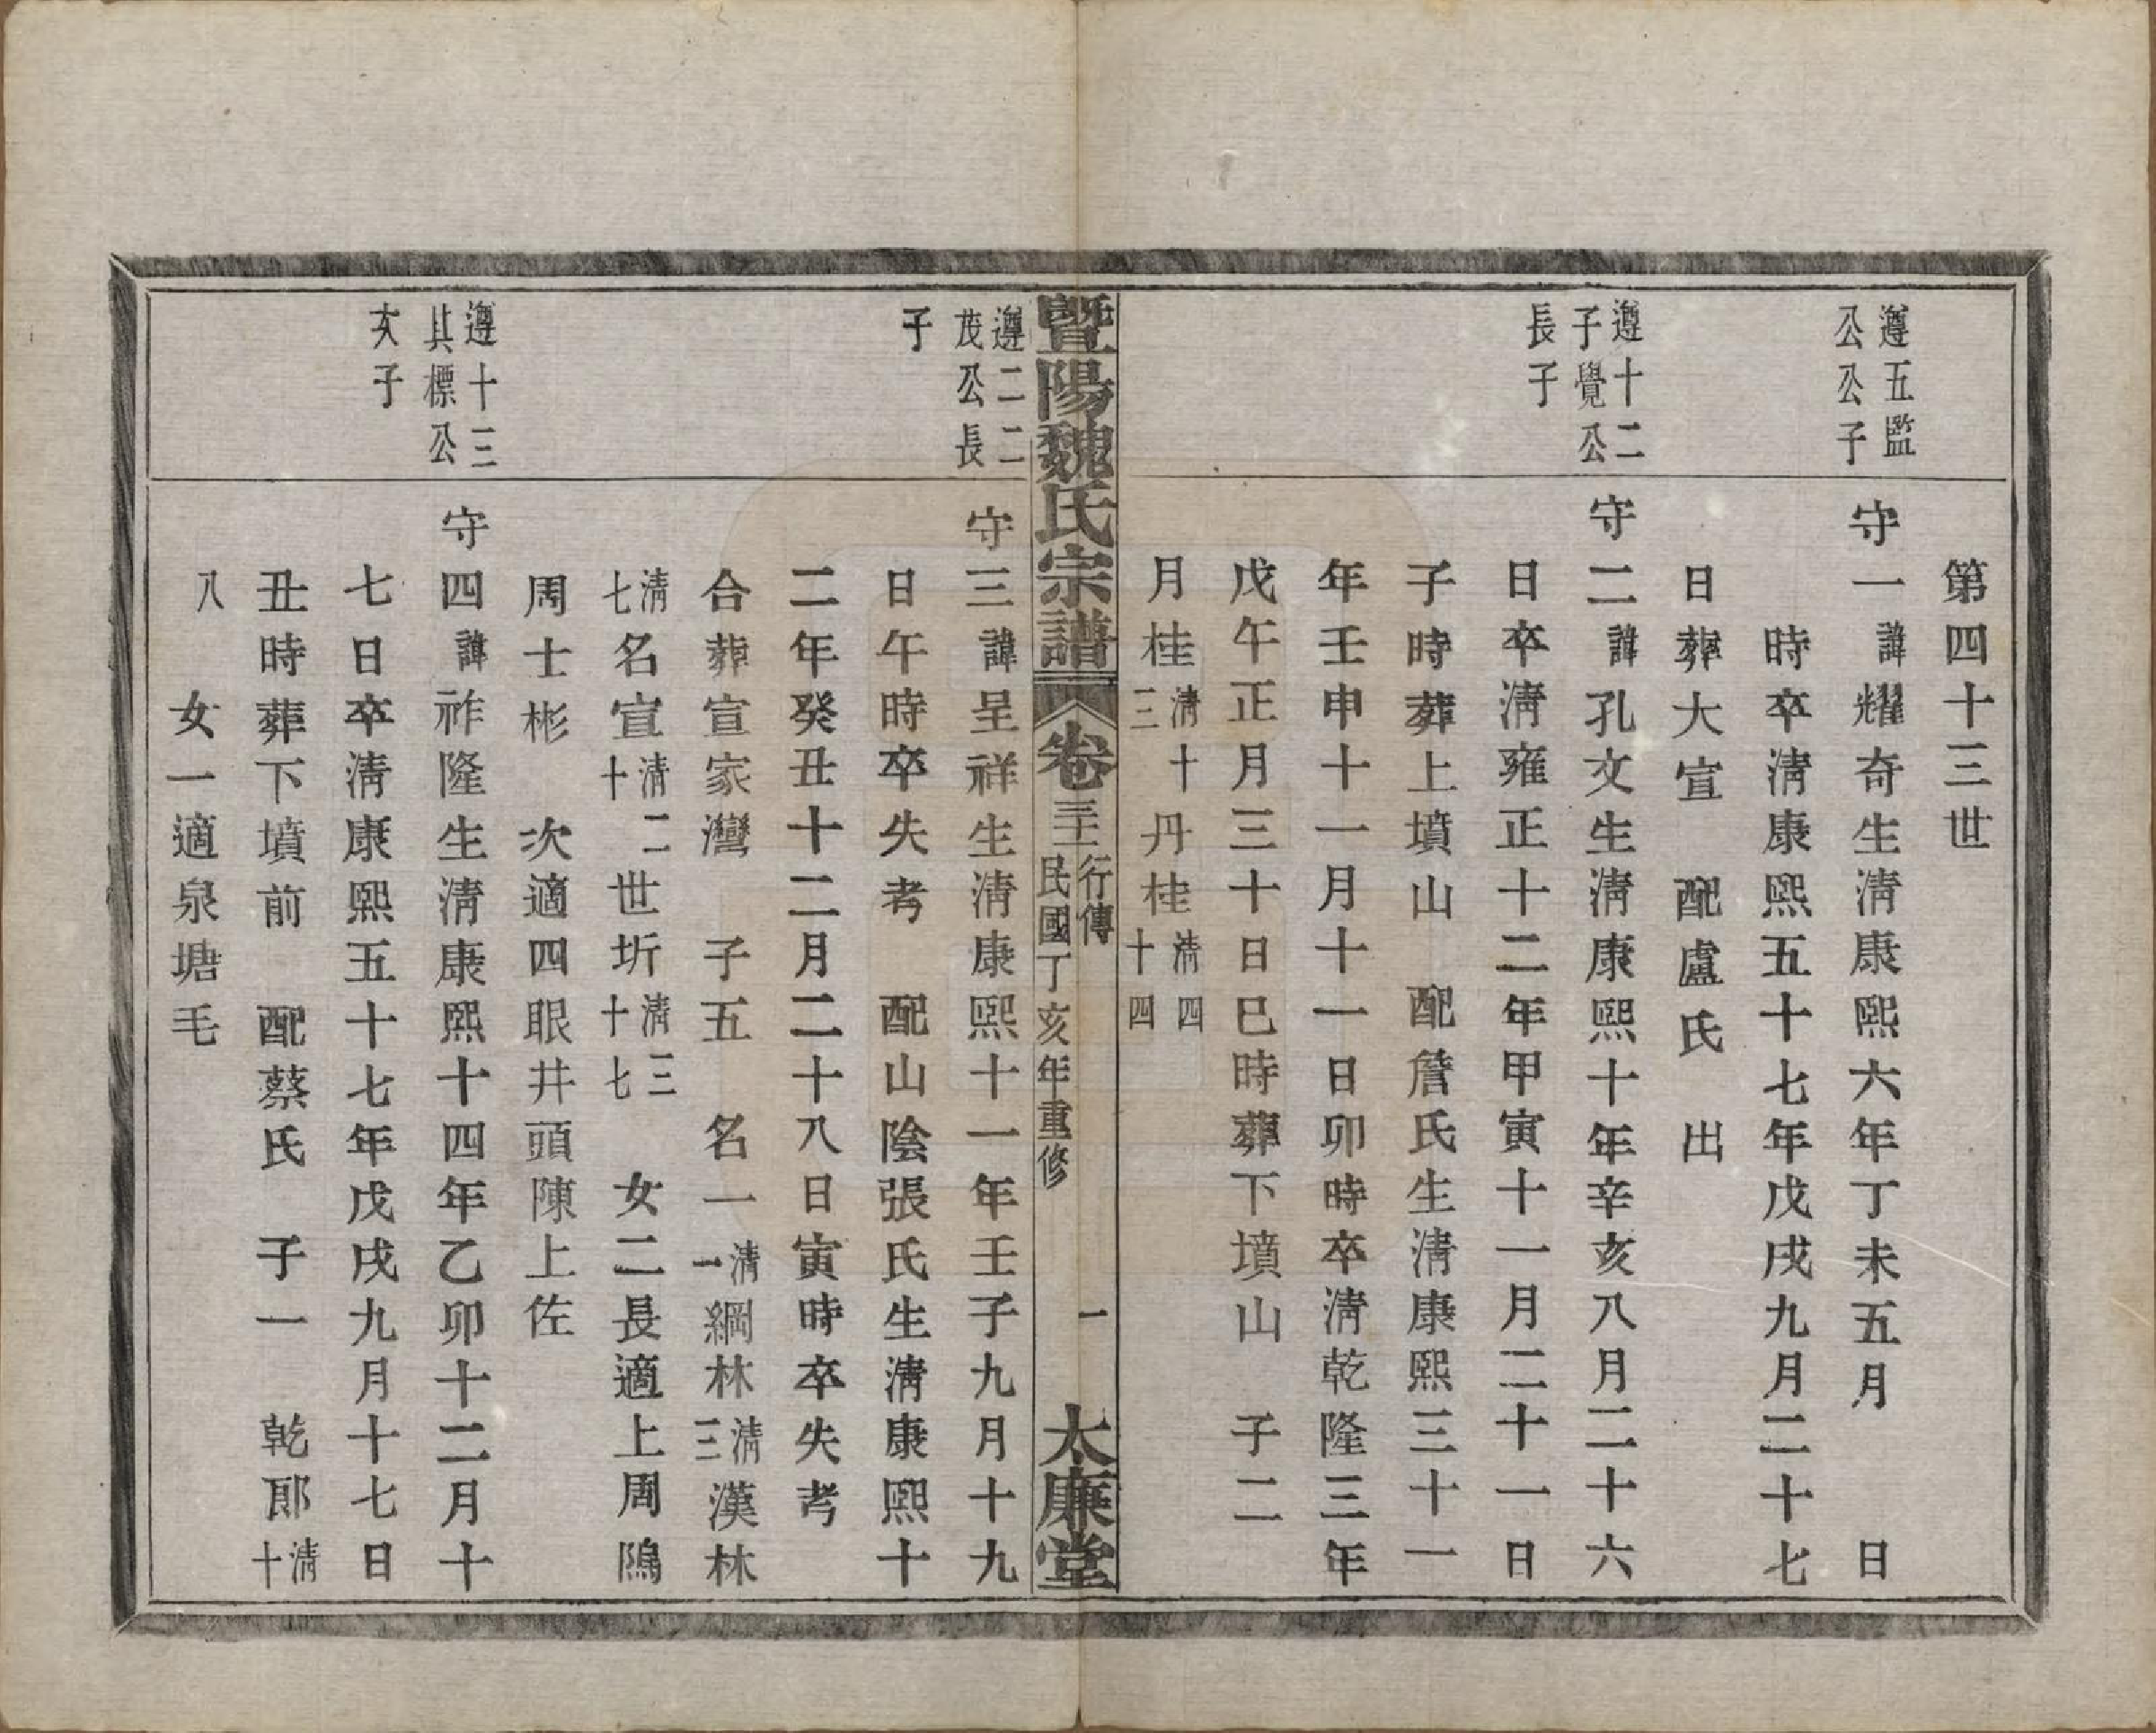 第四十三世
遵五監
公公子
守一諱耀奇生淸康熙六年丁未五月　日
時卒淸康熙五十七年戊戌九月二十七
日葬大宣　配盧氏　出
遵十二
子覺公
長子
守二諱孔文生淸康熙十年辛亥八月二十六
日卒淸雍正十二年甲寅十一月二十一日
子時葬上墳山　配詹氏生淸康熙三十一
年壬申十一月十一日卯時卒淸乾隆三年
戊午正月三十日巳時葬下墳山　子二
月桂淸十三丹桂淸四十四
暨陽魏氏宗譜　卷三十二　行傳　民國丁亥年重修　一　太廉堂
遵二二
茂公長
子
守三諱呈祥生淸康熙十一年壬子九月十九
日午時卒失考　配山陰張氏生淸康熙十
二年癸丑十二月二十八日寅時卒失考
合葬宣家灣　子五　名一淸一綱林淸三漢林
淸七名宣淸二十世圻淸三十七　女二長適上周隝
周士彬　次適四眼井頭陳上佐
遵十三
其標公
次子
守四諱祚隆生淸康熙十四年乙卯十二月十
七日卒淸康熙五十七年戊戌九月十七日
丑時葬下墳前　配蔡氏　子一　乾郎淸十
八　女一適泉塘毛